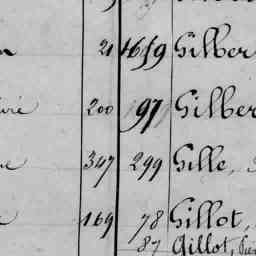 21 1659 Gilber
200 97 Gilber
347 299 Gille,
169 78 Gillot,
87 Gillot,